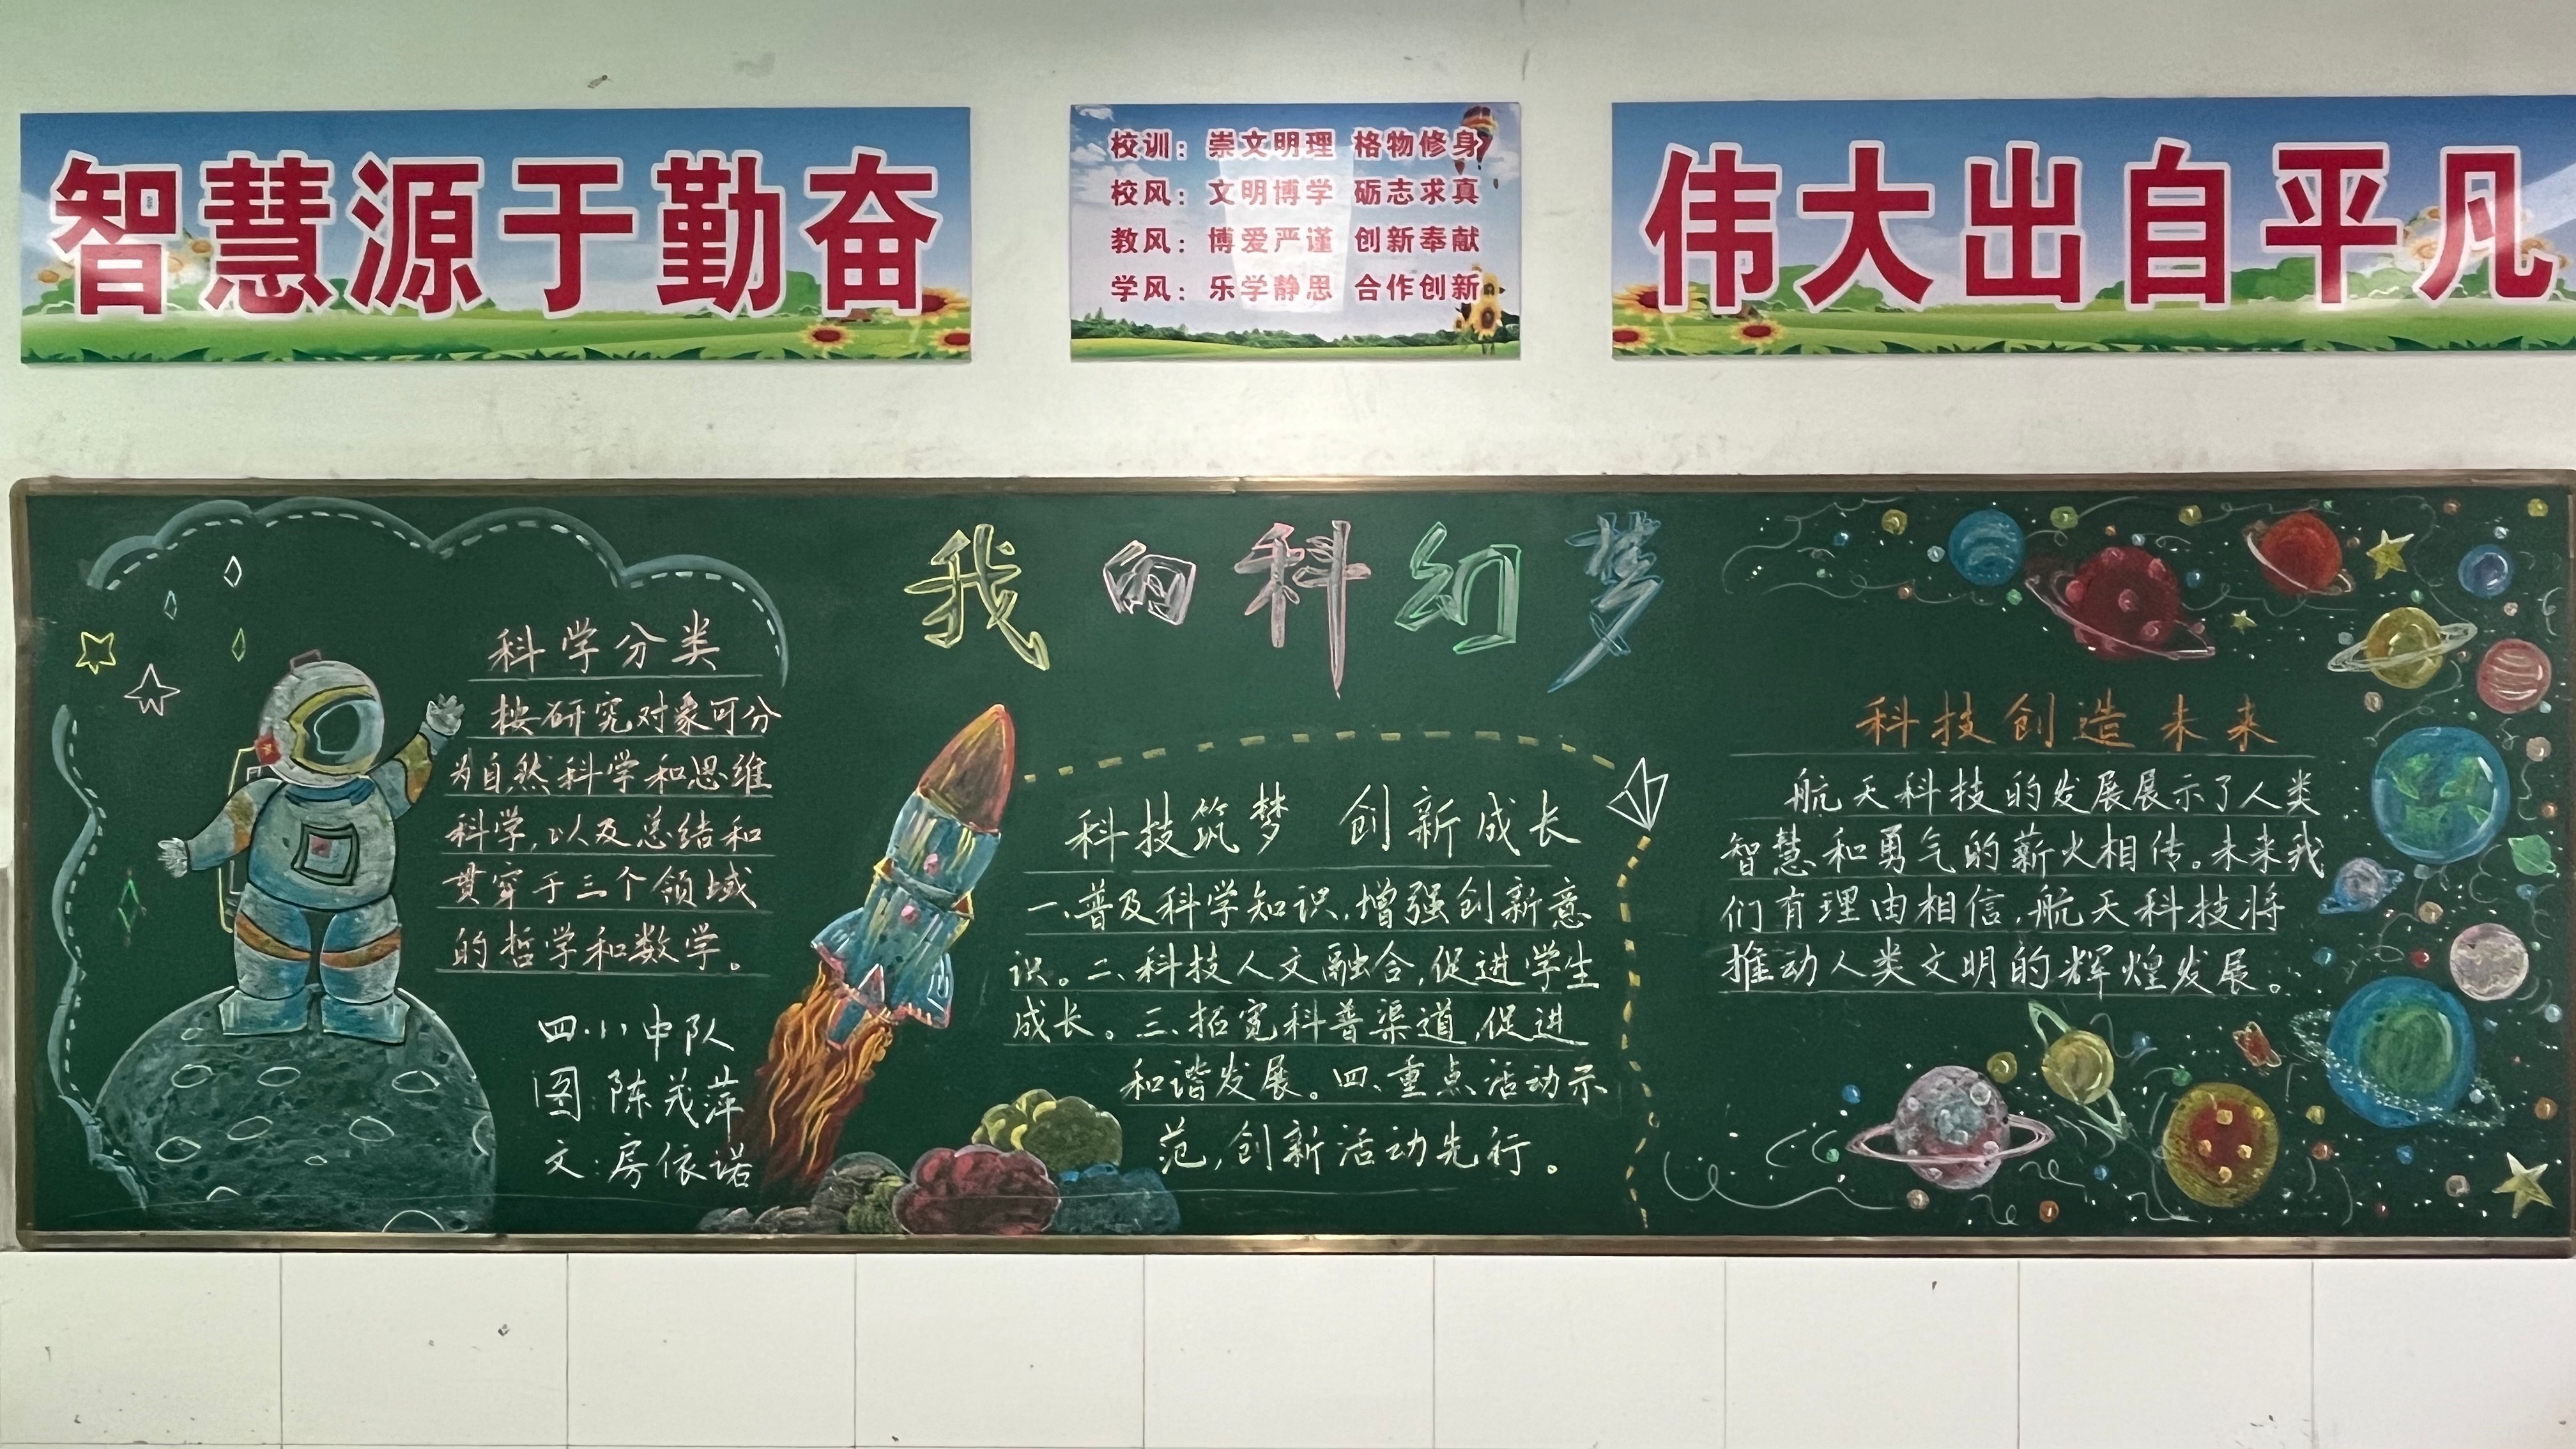 智慧源于勤奋
校训：崇文明理 格物修身
校风：文明博学 砺志求真
教风：博爱严谨 创新奉献
学风：乐学静思 合作创新
伟大出自平凡
我的科幻梦
科学分类
按研究对象可分
为自然科学和思维
科学，以及总结和
贯穿于三个领域
的哲学和数学。
四.1)中队
图：陈茂萍
文：房依诺
科技筑梦 创新成长
一、普及科学知识，增强创新意
识。二、科技人文融合，促进学生
成长。三、拓宽科普渠道，促进
和谐发展。四、重点活动示
范，创新活动先行。
科技创造未来
航天科技的发展展示了人类
智慧和勇气的薪火相传。未来我
们有理由相信，航天科技将
推动人类文明的辉煌发展。